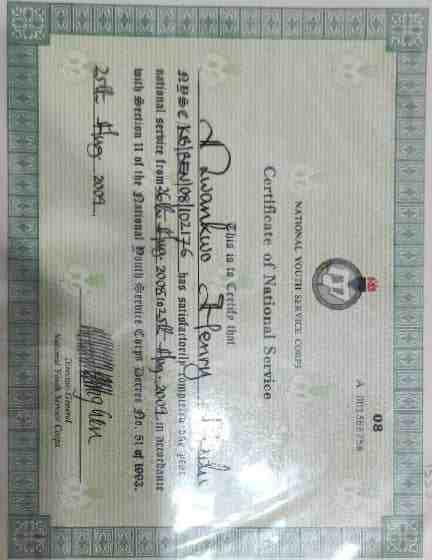 08
NATIONAL YOUTH SERVICE CORPS
Certificate of National Service
This is to Certify that
Nwankwo Henry
NYSC/KB/BEN/08/102176 has satisfactorily completed one year
national service from 26th Aug. 2008 to 25th Aug. 2009 in accordance
with Section 11 of the National Youth Service Corps Decree No. 51 of 1993.
25th Aug 2009.
Director General
National Youth Service Corps